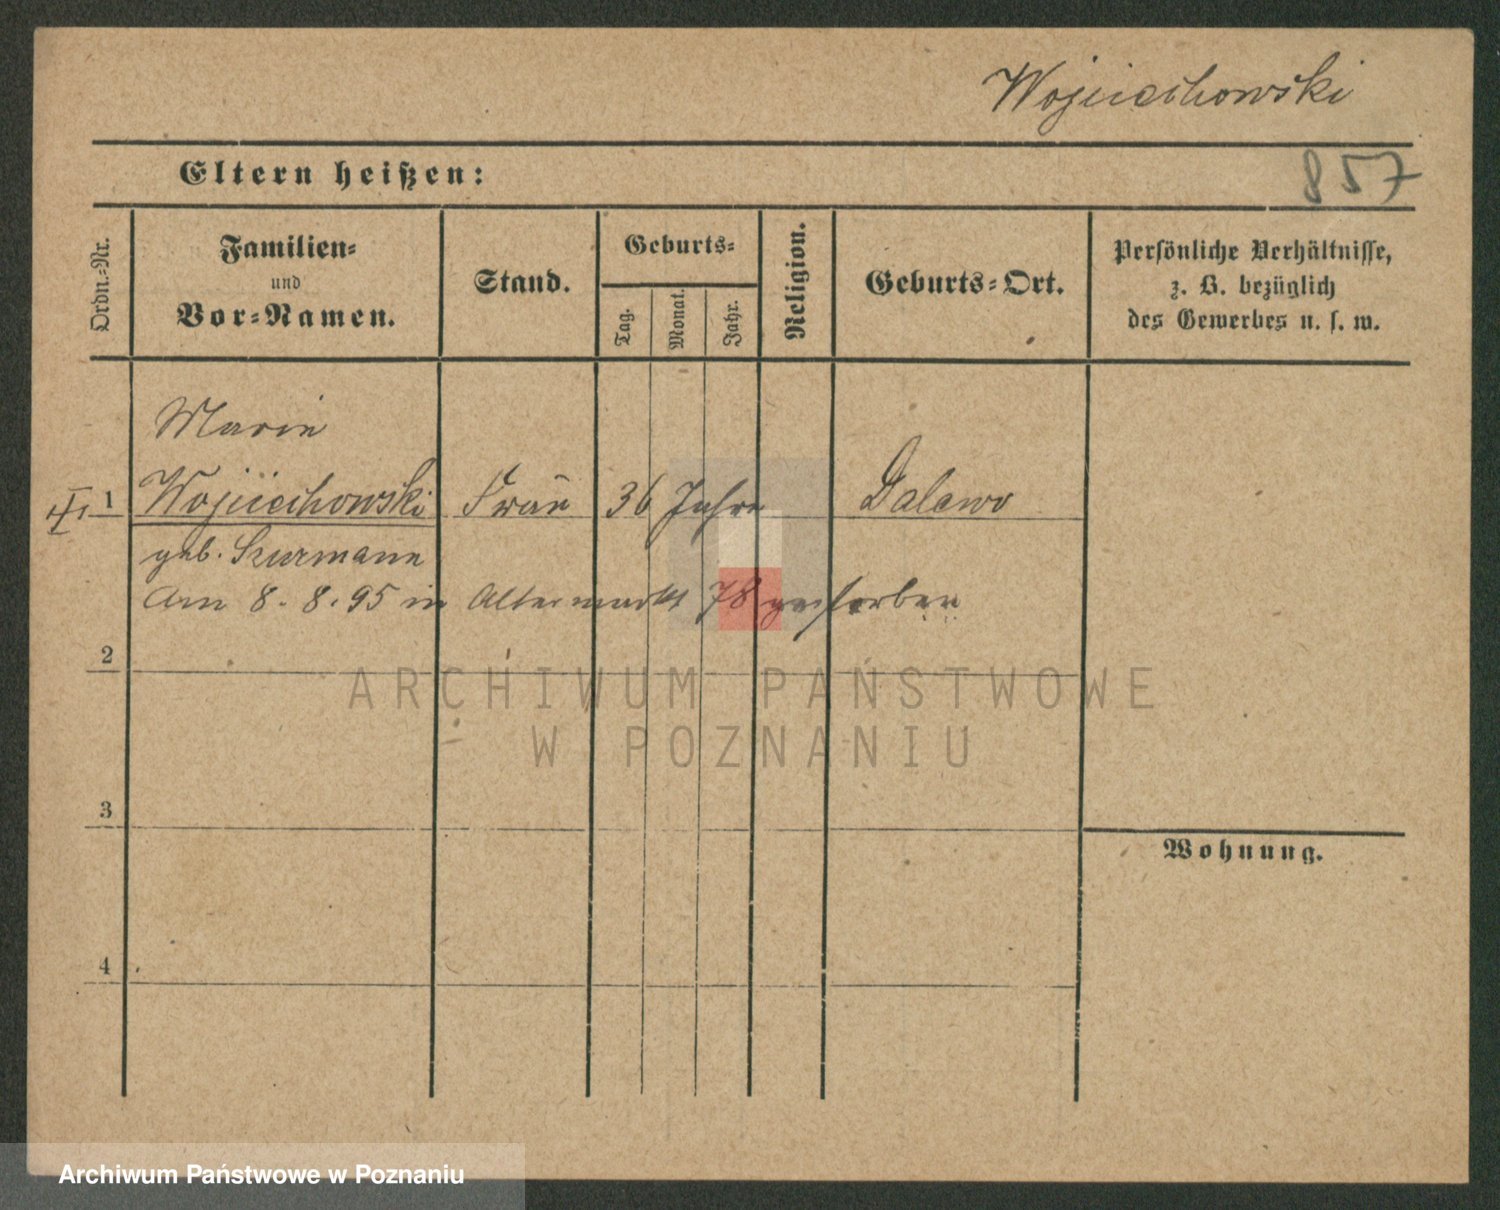 Wojciechowski
857
Eltern heißen:
Ordn.-Nr.
Familien-
und
Vor-Namen.
Stand.
Geburts-
Tag.
Monat.
Jahr.
Religion.
Geburts-Ort.
Persönliche Verhältnisse,
z. B. bezüglich
des Gewerbes u. s. w.
Marie
1 Wojciechowski Frau 36 Jahre Dalewo
geb. Szurmann
Am 8. 8. 95 in Altermarkt 78 gestorben
2
ARCHIWUM PAŃSTWOWE
W POZNANIU
3
Wohnung.
4
Archiwum Państwowe w Poznaniu